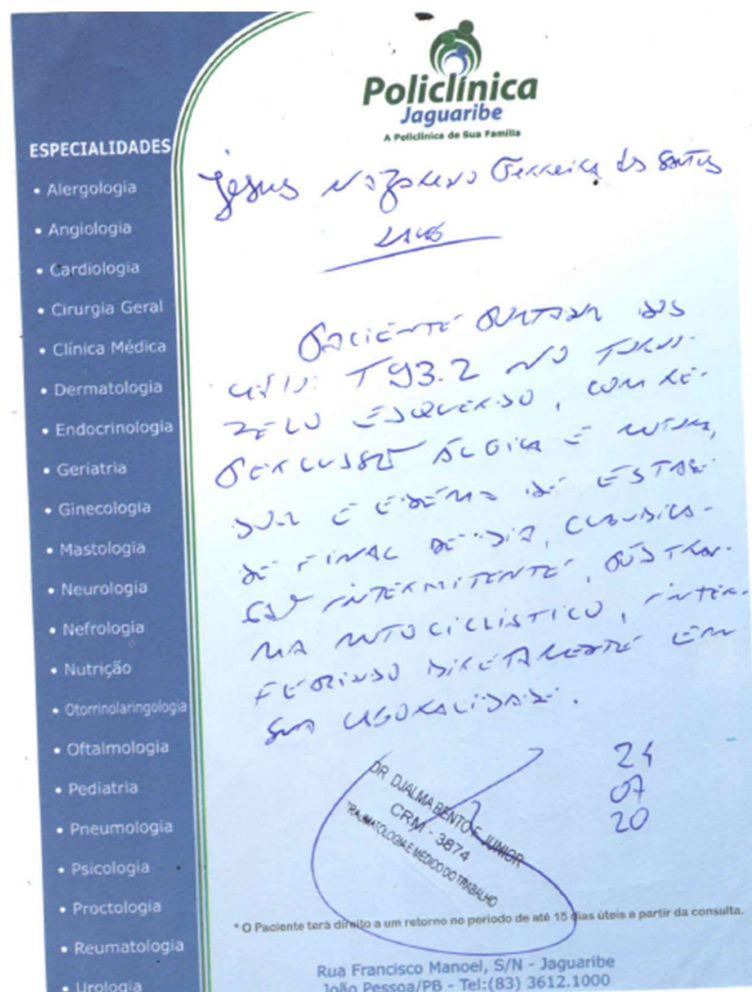 Policlínica
Jaguaribe
A Policlínica de Sua Família
ESPECIALIDADES
• Alergologia
• Angiologia
• Cardiologia
• Cirurgia Geral
• Clínica Médica
• Dermatologia
• Endocrinologia
• Geriatria
• Ginecologia
• Mastologia
• Neurologia
• Nefrologia
• Nutrição
• Otorrinolaringologia
• Oftalmologia
• Pediatria
• Pneumologia
• Psicologia
• Proctologia
• Reumatologia
• Urologia
Jesus Nazareno Ferreira dos Santos
Laudo
Paciente portador dos
T93.2 no torno-
zelo esquerdo, com re-
percussão álgica e
dor e edema de
de final de dia, claudica-
ção intermitente, pós trau-
ma motociclístico, inter-
ferindo diretamente em
sua laboralidade.
24
07
20
DR. DJALMA BENTO F. JUNIOR
CRM - 3874
TRAUMATOLOGIA E MÉDICO DO TRABALHO
* O Paciente terá direito a um retorno no período de até 15 dias úteis a partir da consulta.
Rua Francisco Manoel, S/N - Jaguaribe
João Pessoa/PB - Tel:(83) 3612.1000